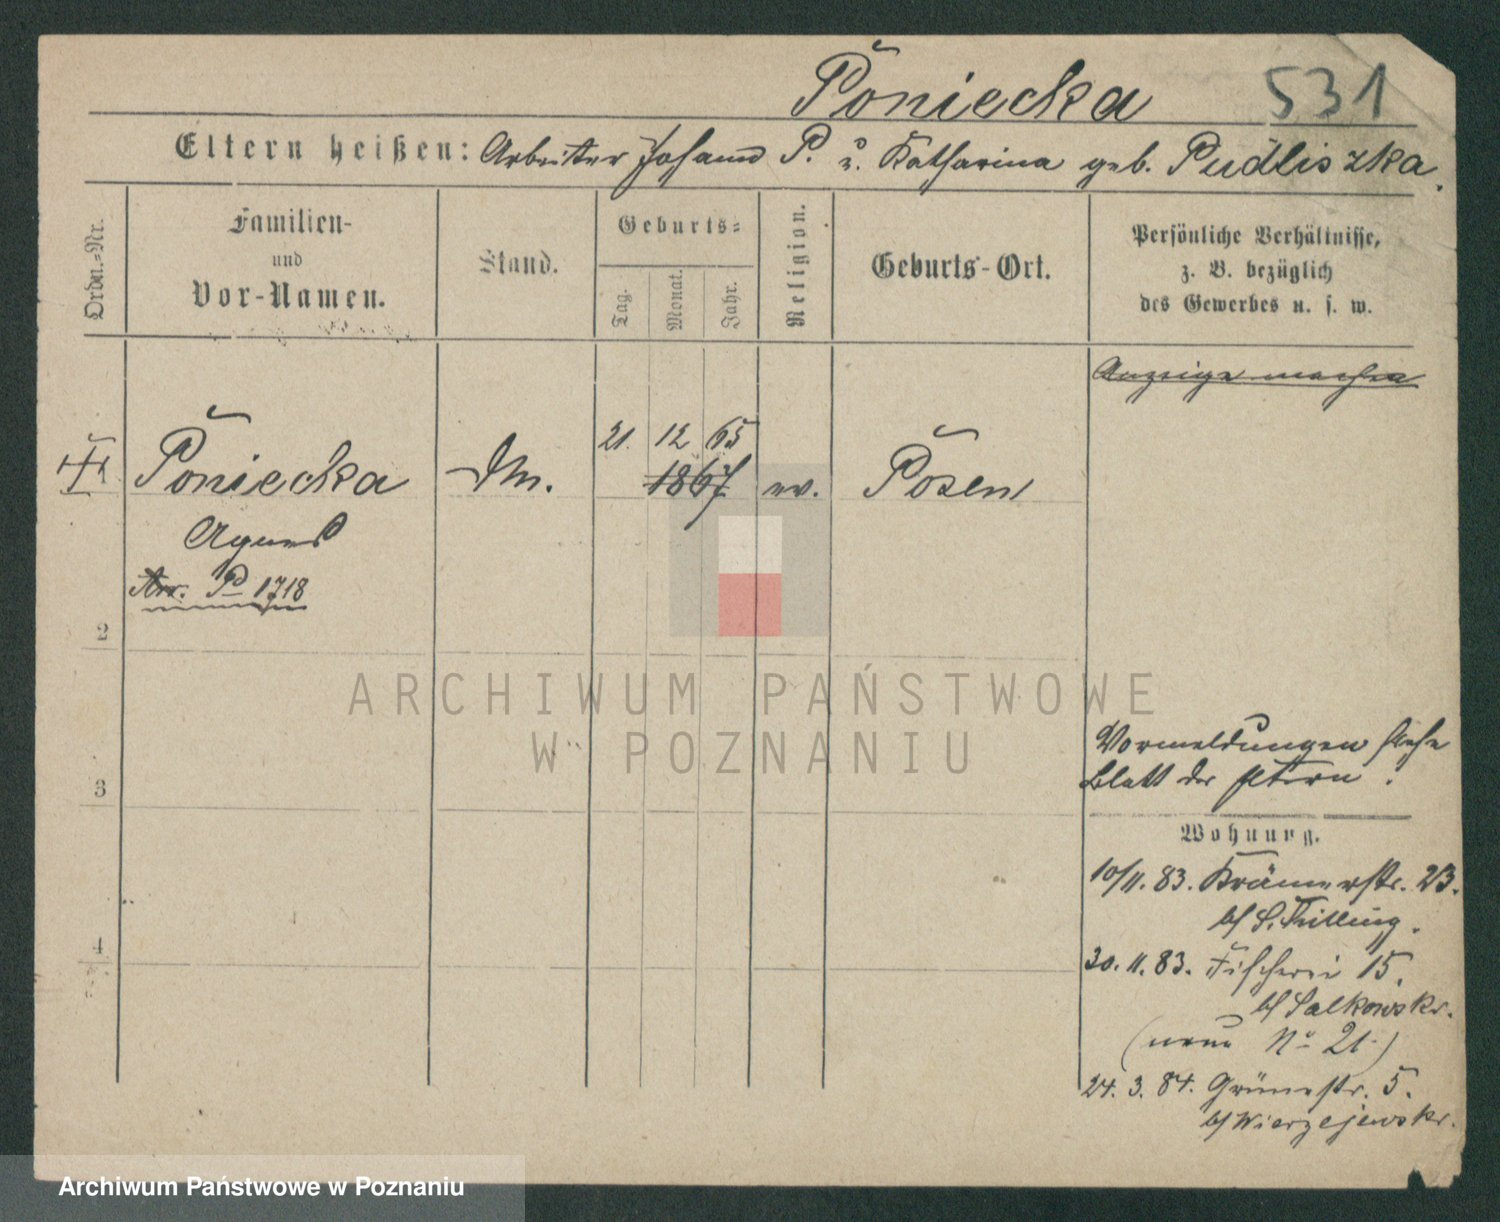 Poniecka 531
Eltern heißen: Arbeiter Johann P. u. Katharina geb. Pudliszka.
Ordn.-Nr.
Familien-
und
Vor-Namen.
Stand.
Geburts-
Tag.
Monat.
Jahr.
Religion.
Geburts-Ort.
Persönliche Verhältnisse,
z. B. bezüglich
des Gewerbes u. s. w.
Anzeige machen
21. 12 65
Poniecka Dm. 1867 ev. Posen
Agnes
P 1718
2
3
4
Vormeldungen siehe
Blatt der Eltern.
Wohnung.
10/11. 83. Krämerstr. 23.
b/
30. 11. 83. Fischerei 15.
b/ Salkowski.
(neue No 21.)
24. 3. 84. Grünestr. 5.
b/ Wierzejewski.
ARCHIWUM PAŃSTWOWE
W POZNANIU
Archiwum Państwowe w Poznaniu